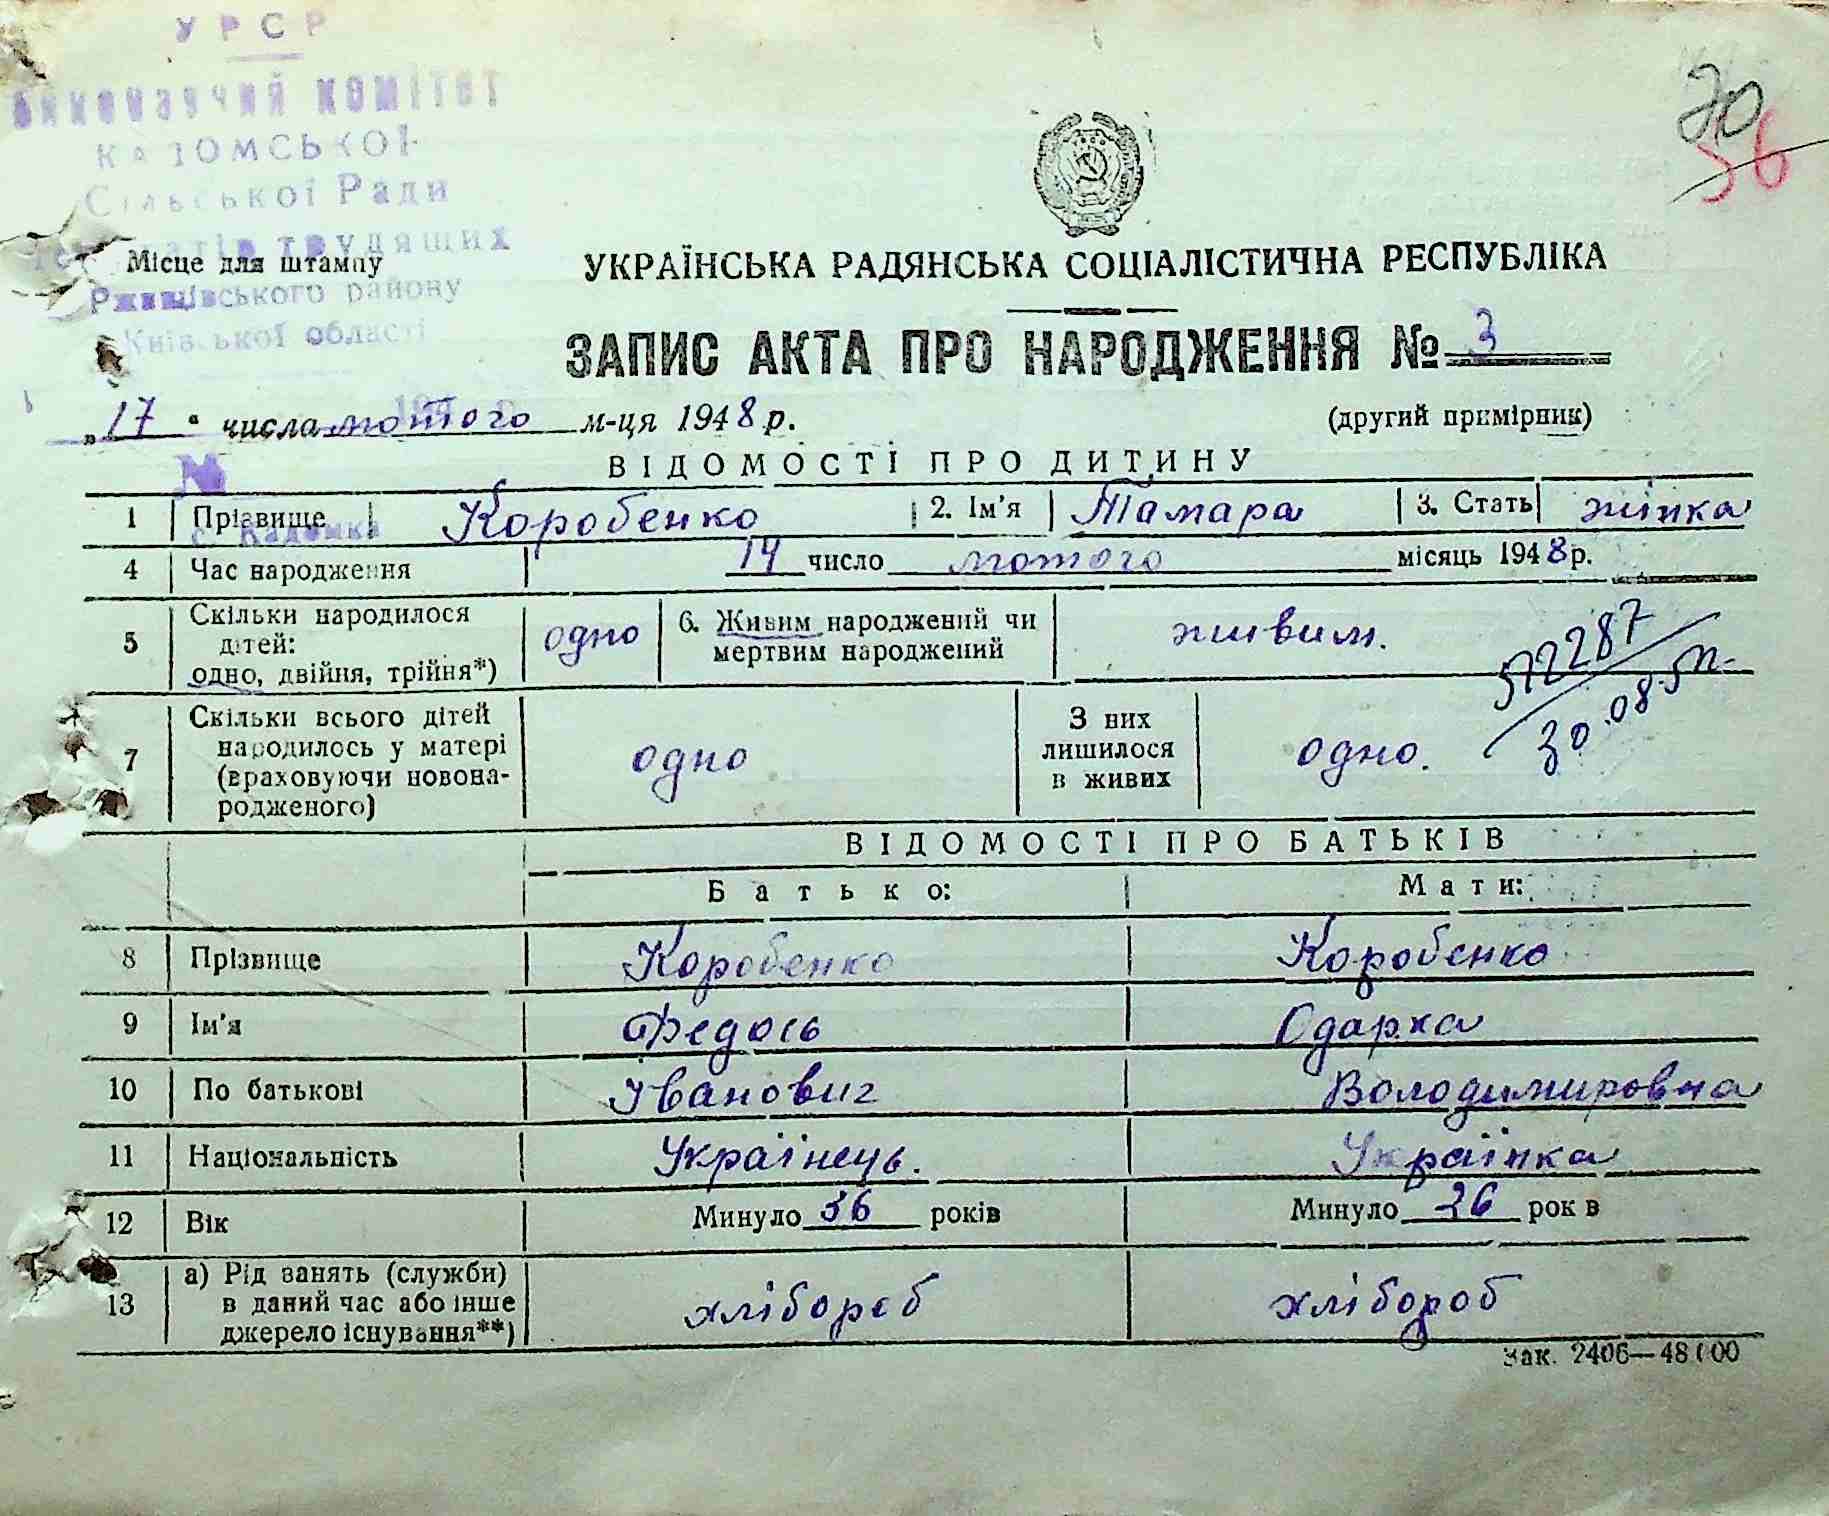 УРСР
Виконавчий комітет
Кадомської
Сільської Ради
депутатів трудящих
Ржищівського району
Київської області
Місце для штампу
с. Кадомка
70
56
УКРАЇНСЬКА РАДЯНСЬКА СОЦІАЛІСТИЧНА РЕСПУБЛІКА
ЗАПИС АКТА ПРО НАРОДЖЕННЯ № 3
„17“ числа лютого м-ця 1948 р. (другий примірник)
ВІДОМОСТІ ПРО ДИТИНУ
1 Прізвище Коробенко 2. Ім'я Тамара 3. Стать жінка
4 Час народження 14 число лютого місяць 1948 р.
5 Скільки народилося дітей: одно, двійня, трійня*) одно 6. Живим народжений чи мертвим народжений живим.
572287
30.08.
7 Скільки всього дітей народилось у матері (враховуючи новонародженого) одно З них лишилося в живих одно.
ВІДОМОСТІ ПРО БАТЬКІВ
Батько: Мати:
8 Прізвище Коробенко Коробенко
9 Ім'я Федось Одарка
10 По батькові Іванович Володимировна
11 Національність Українець. Українка
12 Вік Минуло 36 років Минуло 26 років
13 а) Рід занять (служби) в даний час або інше джерело існування**) хлібороб хлібороб
Зак. 2406—48000